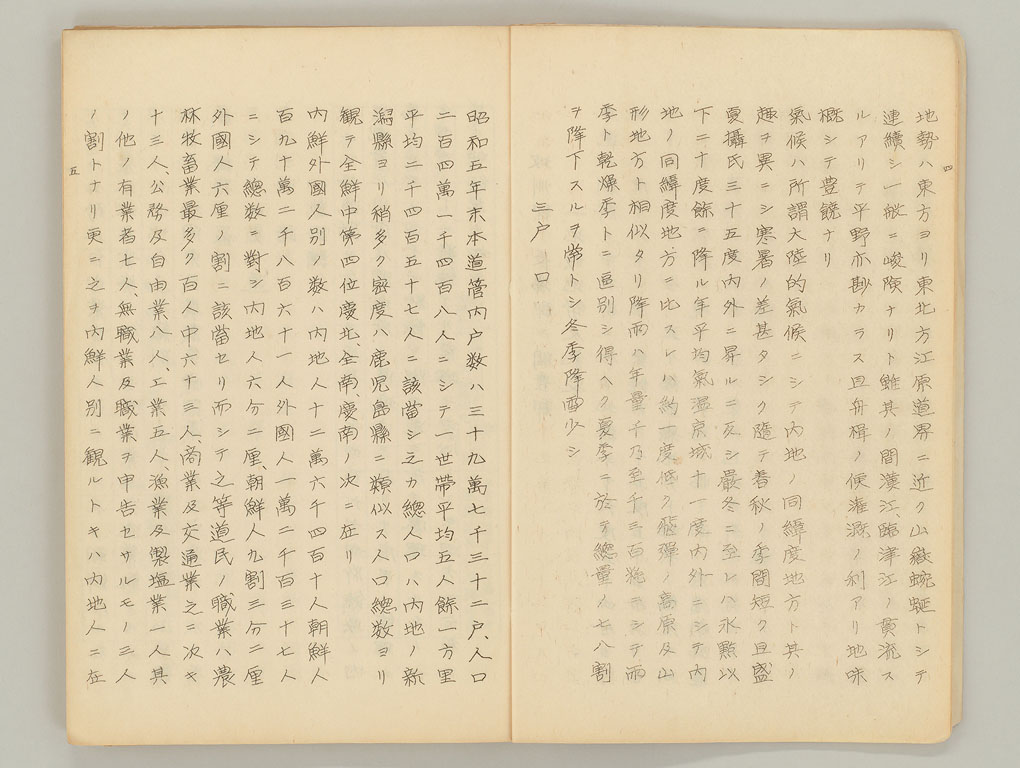 四
地勢ハ東方ヨリ東北方江原道界ニ近ク山嶽蜿蜒トシテ
連續シ一般ニ峻険ナリト雖其ノ間漢江、臨津江ノ貫流ス
ルアリテ平野亦尠カラス且舟楫ノ便灌漑ノ利アリ地味
概シテ豊饒ナリ
氣候ハ所謂大陸的氣候ニシテ内地ノ同緯度地方ト其ノ
趣ヲ異ニシ寒暑ノ差甚タシク隨テ春秋ノ季間短ク且盛
夏攝氏三十五度内外ニ昇ルニ反シ嚴冬ニ至レハ氷點以
下二十度餘ニ降ル年平均氣温京城十一度内外ニシテ内
地ノ同緯度地方ニ比スレハ約一度低ク飛彈ノ高原及山
形地方ト相似タリ降雨ハ年量千乃至千三百粍ニシテ雨
季ト乾燥季トニ區別シ得ヘク夏季ニ於テ總量ノ七八割
ヲ降下スルヲ常トシ冬季降雪少シ
三戸口
昭和五年末本道管内戸数ハ三十九萬七千三十二戸、人口
二百四萬一千四百八人ニシテ一世帶平均五人餘一方里
平均二千四百五十七人ニ該當シ之カ總人口ハ内地ノ新
潟縣ヨリ稍多ク密度ハ鹿児島縣ニ類似ス人口總数ヨリ
観テ全鮮中第四位慶北、全南、慶南ノ次ニ在リ
内鮮外國人別ノ数ハ内地人十二萬六千四百十人朝鮮人
百九十萬二千八百六十一人外國人一萬二千百三十七人
ニシテ總数ニ對シ内地人六分二厘、朝鮮人九割三分二厘
外國人六厘ノ割ニ該當セリ而シテ之等道民ノ職業ハ農
林牧畜業最多ク百人中六十三人、商業及交通業之ニ次キ
十三人、公務及自由業八人、工業五人、漁業及製塩業一人其
ノ他ノ有業者七人、無職業及職業ヲ申告セサルモノ三人
ノ割トナリ更ニ之ヲ内鮮人別ニ観ルトキハ内地人ニ在
五